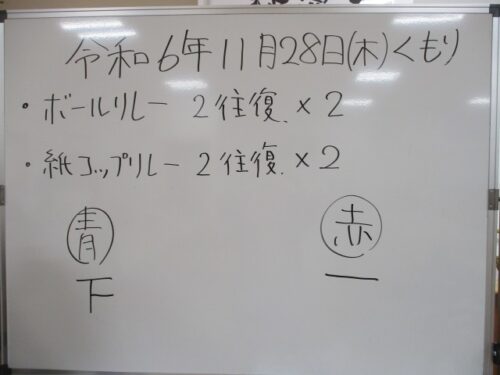 令和6年11月28日(木)くもり
・ボールリレー 2往復 × 2
・紙コップリレー 2往復 × 2
青 赤
下 一